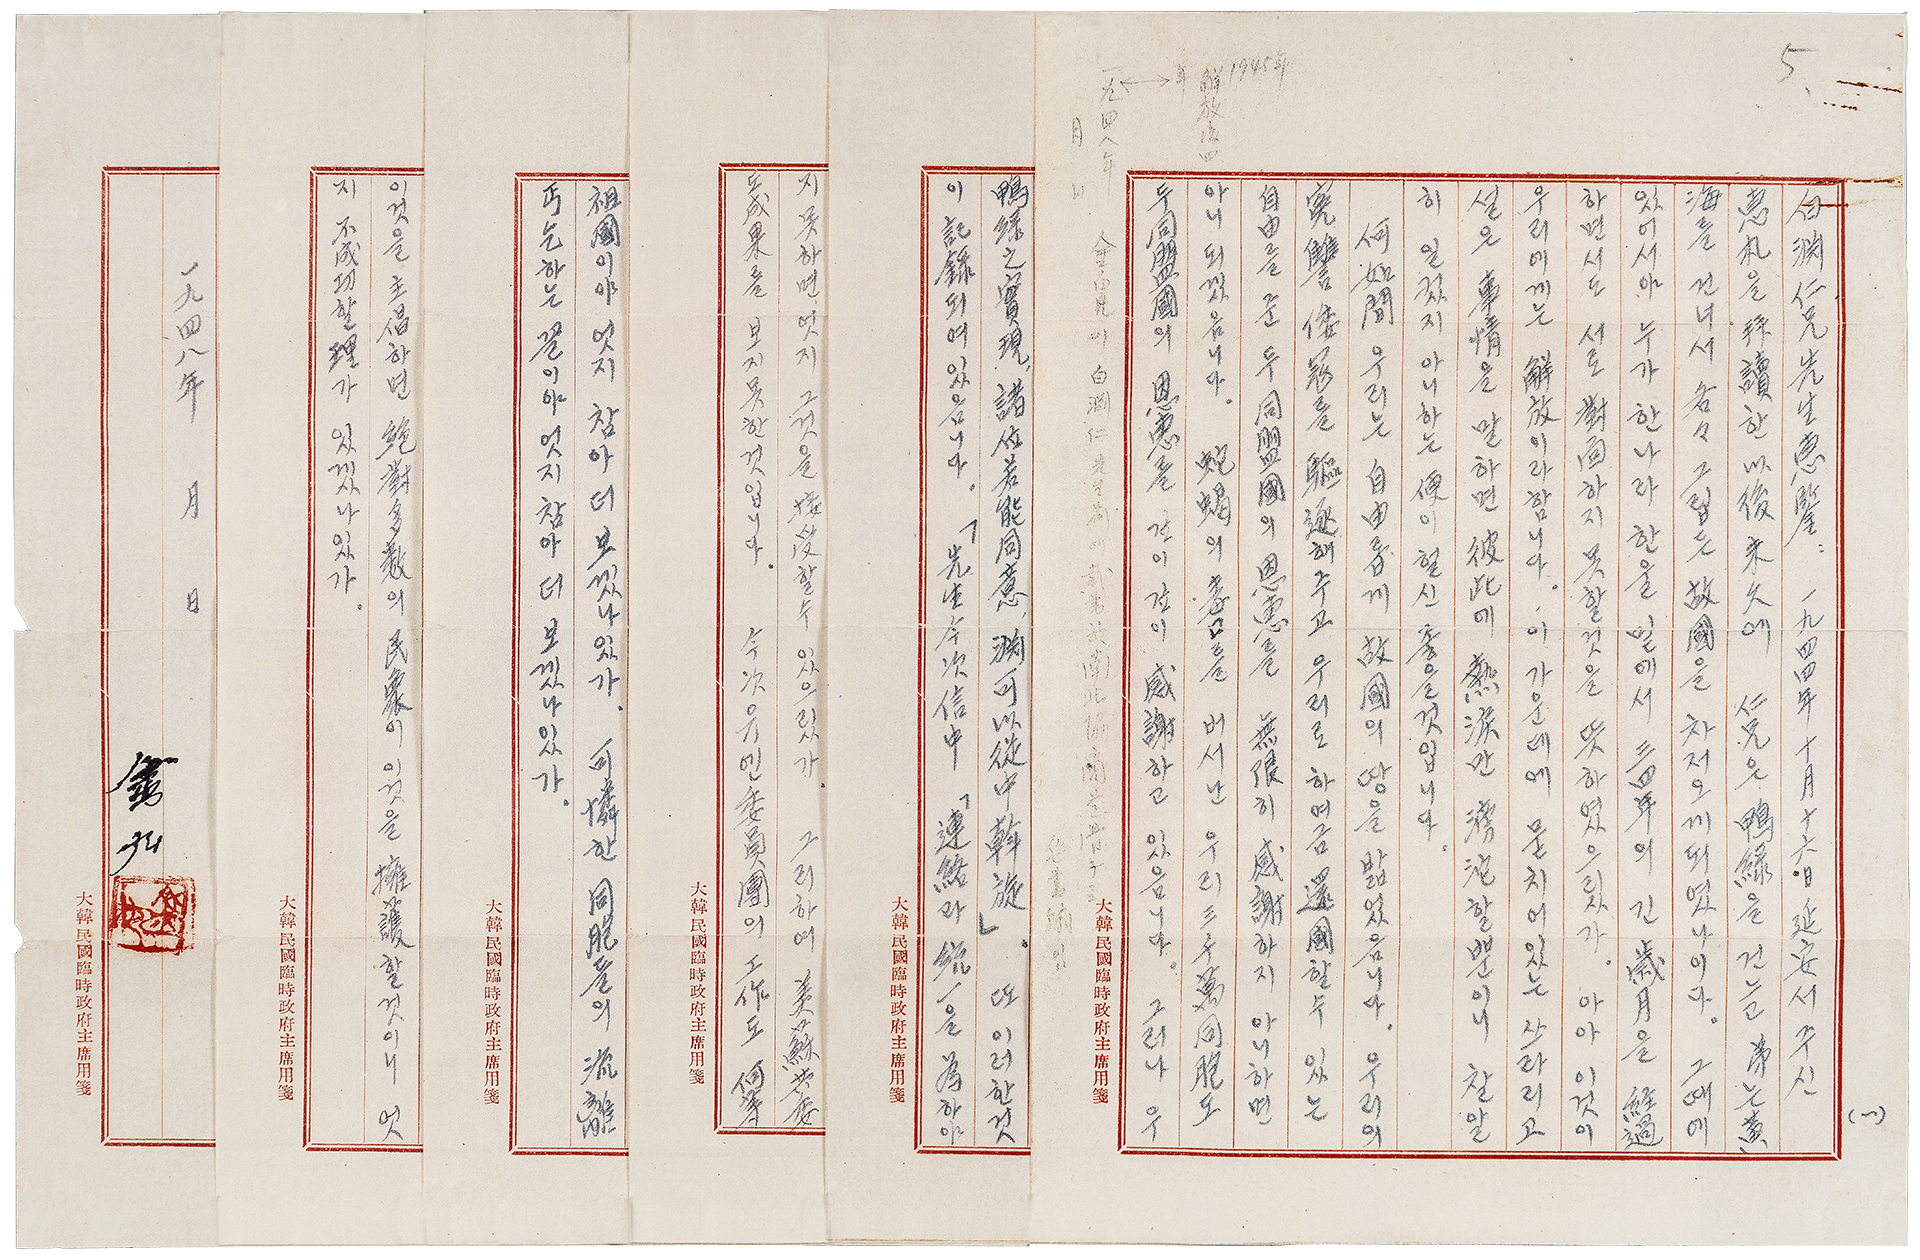 5
(一)
白淵仁兄先生惠鑒: 一九四四年十月十六日延安서 주신
惠札을 拜讀한 以後 未久에 仁兄은 鴨綠을 건는 弟는 黃
海를 건너서 各々 그립든 故國을 차저오게 되였나이다. 그때에
있어서야 누가 한나라 한울 밑에서 三四年의 긴 歲月을 經過
하면서도 서로 對面하지 못할것을 뜻하였으릿가. 아아 이것이
우리에게는 解放이라 함니다. 이 가운데에 묻치어 있는 쓰라리고
설은 事情을 말하면 彼此에 熱淚만 滂沱할뿐이니 찰알
히 일컷지 아니하는 便이 헐신 좋을것입니다.
何如間 우리는 自由롭게 故國의 땅을 밟었음니다. 우리의
寃讐 倭寇를 驅逐해주고 우리로 하여금 還國할수 있는
自由를 준 두 同盟國의 恩惠를 無限히 感謝하지 아니하면
아니되겠음니다. 蛇蝎의 毒口를 버서난 우리 三千萬同胞도
두 同盟國의 恩惠를 갚이갚이 感謝하고 있음니다. 그러나 우
解放後四年 1945年
一九四八年 月 日
大韓民國臨時政府主席用箋
鴨綠之實現, 諸位若能同意, 淵可以從中斡旋」. 또 이러한것
이 記錄되여있음니다. 「先生今次信中「連絡과 統一을 為하야
大韓民國臨時政府主席用箋
지 못하면 엇지 그것을 接受할수 있으릿가 그리하여 美蘇共委
도 成果를 보지못한것입니다. 今次 유엔委員團의 工作도 何等
大韓民國臨時政府主席用箋
祖國이야 엇지 참아 더 보겠나있가. 可憐한 同胞들의 流離
丐乞하는 꼴이야 엇지 참아 더 보겠나있가.
大韓民國臨時政府主席用箋
이것을 主倡하면 絶對多數의 民衆이 이것을 擁護할것이니 엇
지 不成功할 理가 있겠나있가.
大韓民國臨時政府主席用箋
一九四八年 月 日
金九
大韓民國臨時政府主席用箋